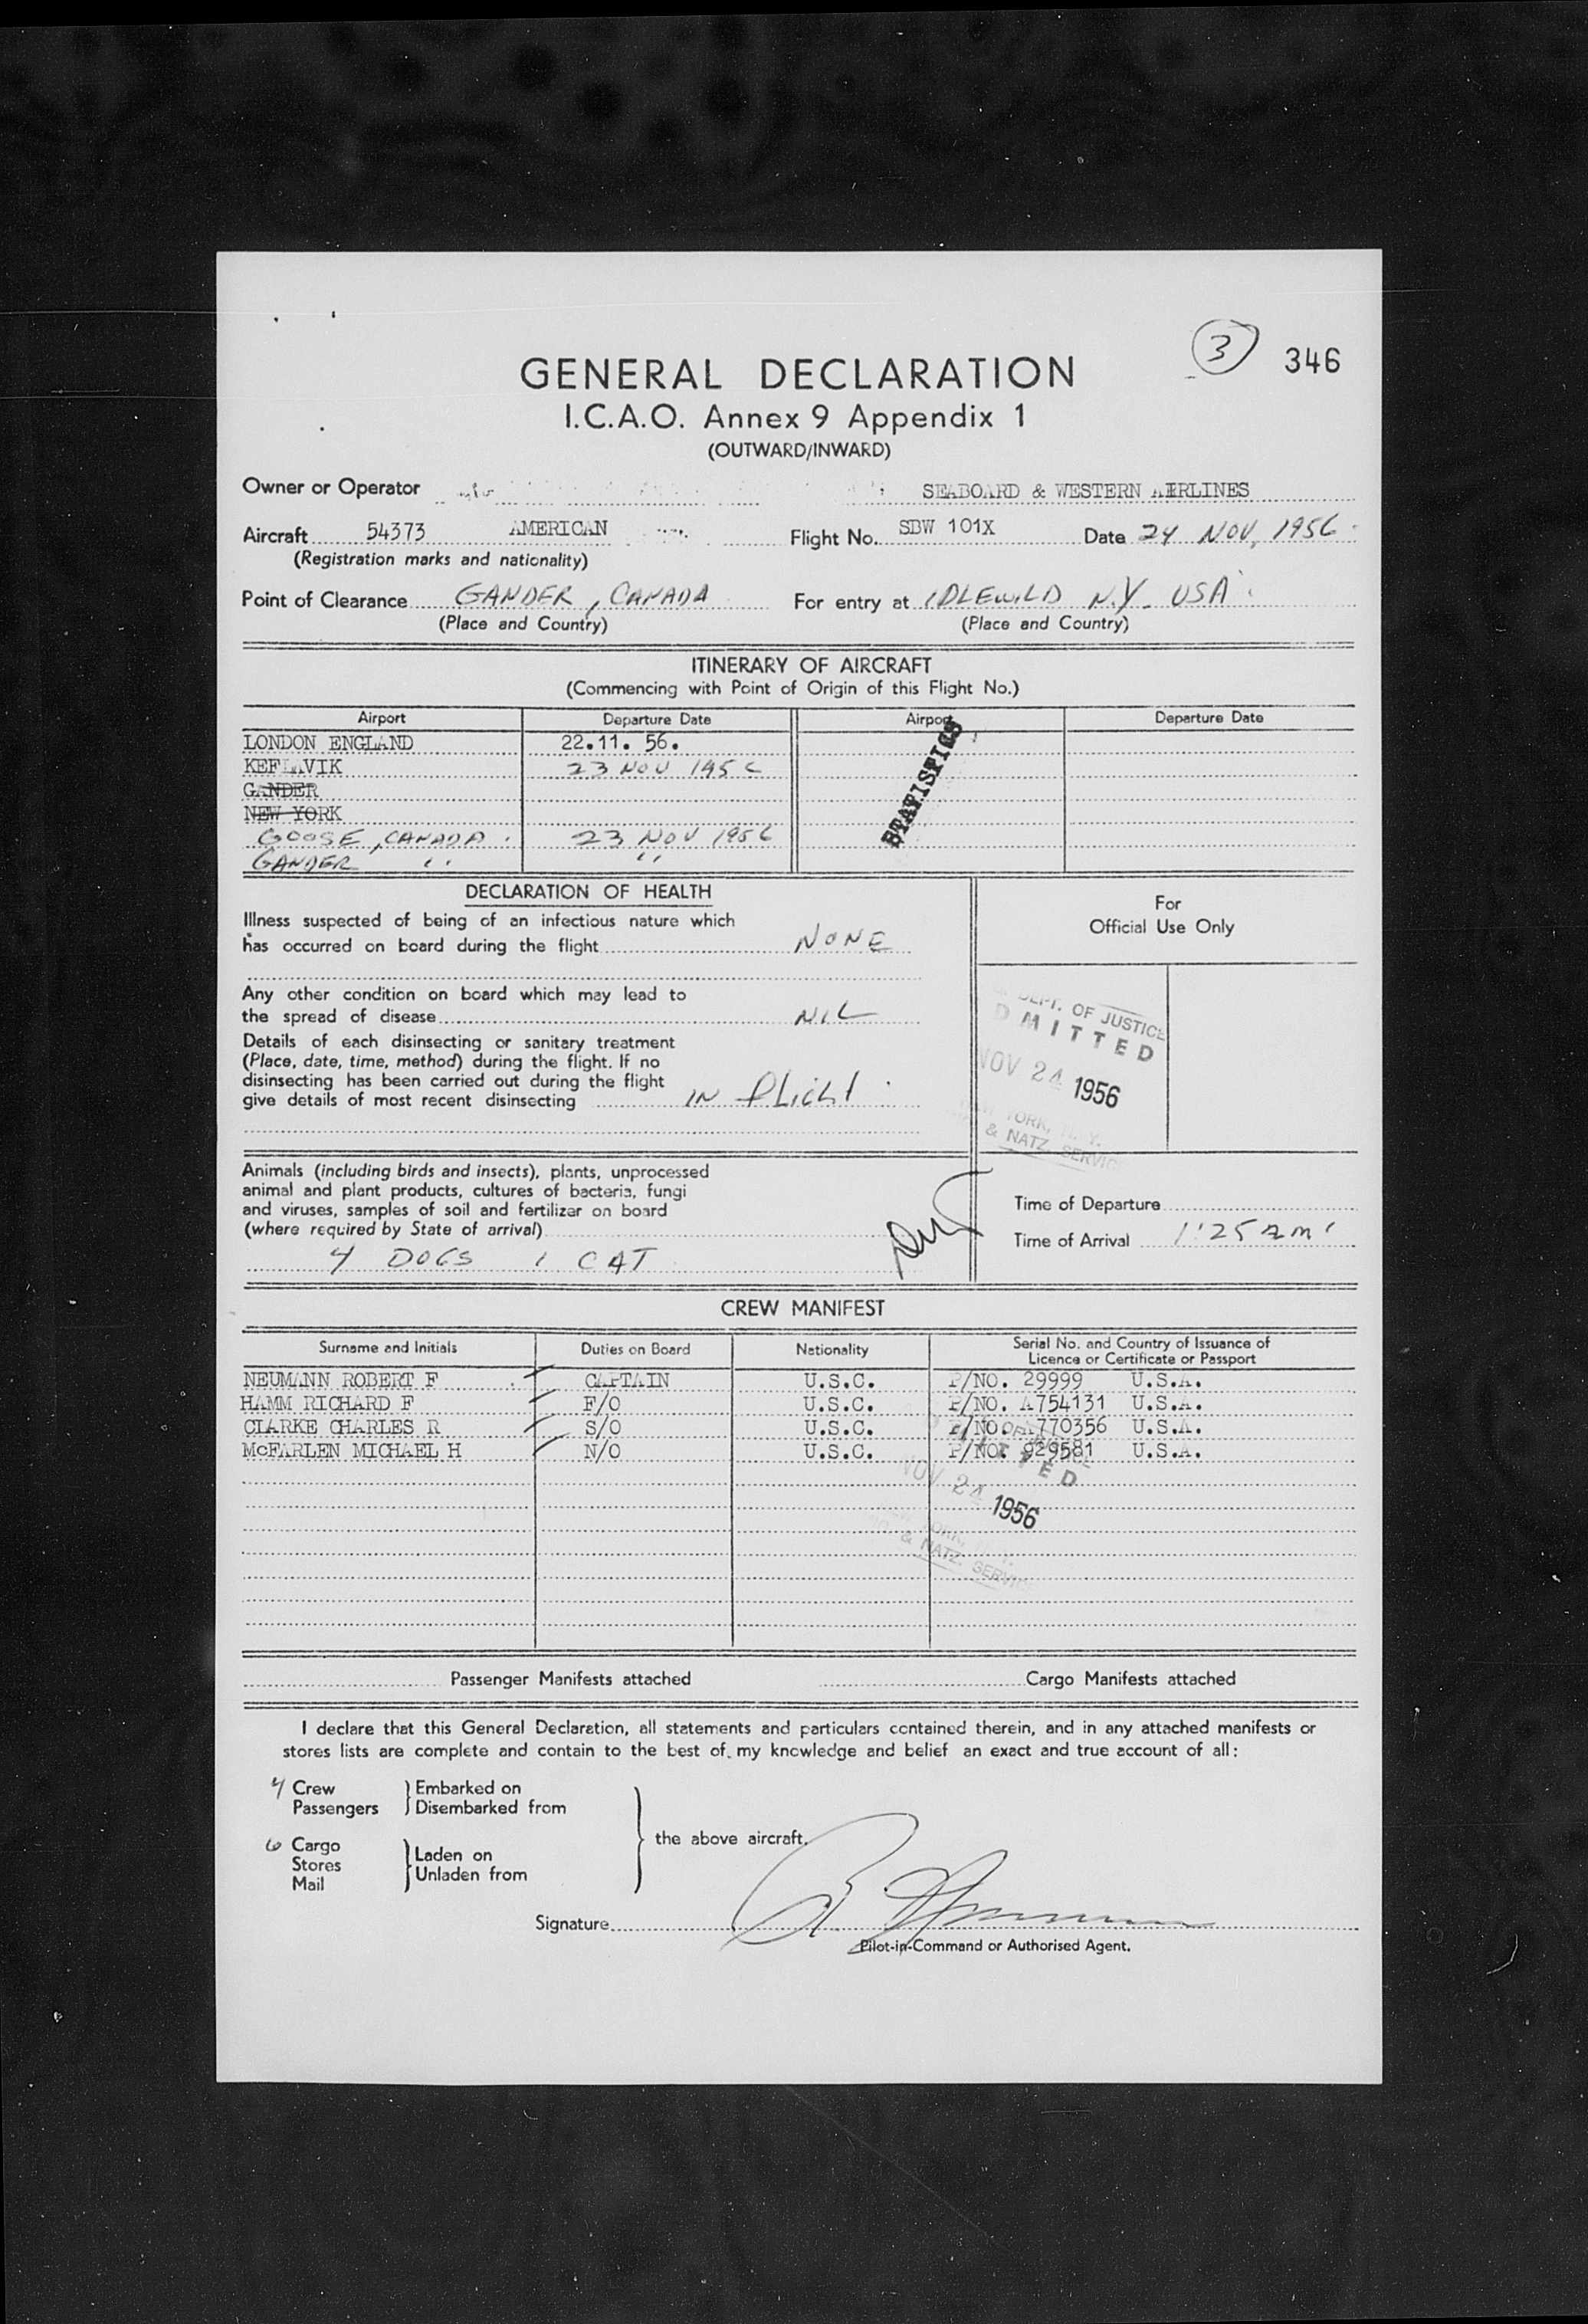 3 346
GENERAL DECLARATION
I.C.A.O. Annex 9 Appendix 1
(OUTWARD/INWARD)
Owner or Operator SEABOARD & WESTERN AIRLINES
Aircraft 54373 AMERICAN Flight No. SBW 101X Date 24 NOV, 1956
(Registration marks and nationality)
Point of Clearance GANDER, CANADA For entry at IDLEWILD N.Y. USA
(Place and Country) (Place and Country)
ITINERARY OF AIRCRAFT
(Commencing with Point of Origin of this Flight No.)
Airport Departure Date Airport Departure Date
LONDON ENGLAND 22.11. 56.
KEFLAVIK 23 NOV 1956
GANDER
NEW YORK
GOOSE, CANADA. 23 NOV 1956
GANDER " "
STATISTICS
DECLARATION OF HEALTH
Illness suspected of being of an infectious nature which
has occurred on board during the flight NONE
Any other condition on board which may lead to
the spread of disease NIL
Details of each disinsecting or sanitary treatment
(Place, date, time, method) during the flight. If no
disinsecting has been carried out during the flight
give details of most recent disinsecting IN flight
For
Official Use Only
DEPT. OF JUSTICE
DMITTED
NOV 24 1956
YORK, N.Y.
& NATZ. SERVIC
Animals (including birds and insects), plants, unprocessed
animal and plant products, cultures of bacteria, fungi
and viruses, samples of soil and fertilizer on board
(where required by State of arrival)
4 DOGS 1 CAT
Time of Departure
Time of Arrival 1:25 am
CREW MANIFEST
Surname and Initials Duties on Board Nationality Serial No. and Country of Issuance of
Licence or Certificate or Passport
NEUMANN ROBERT F CAPTAIN U.S.C. P/NO. 29999 U.S.A.
HAMM RICHARD F F/O U.S.C. P/NO. A754131 U.S.A.
CLARKE CHARLES R S/O U.S.C. P/NO. A770356 U.S.A.
McFARLEN MICHAEL H N/O U.S.C. P/NO. 929581 U.S.A.
NOV 24 1956
& NATZ. SERVIC
Passenger Manifests attached Cargo Manifests attached
I declare that this General Declaration, all statements and particulars contained therein, and in any attached manifests or
stores lists are complete and contain to the best of my knowledge and belief an exact and true account of all:
4 Crew Embarked on
Passengers Disembarked from
the above aircraft.
Cargo Laden on
Stores Unladen from
Mail
Signature
Pilot-in-Command or Authorised Agent.